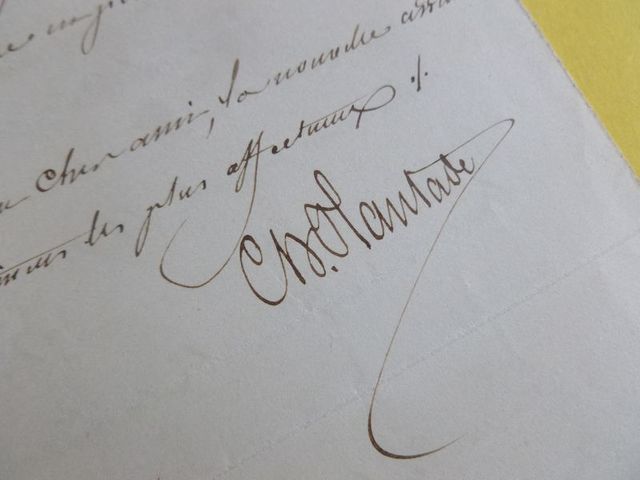 cher ami, la nouvelle
les plus affectueux ./.
Ch. Plantade